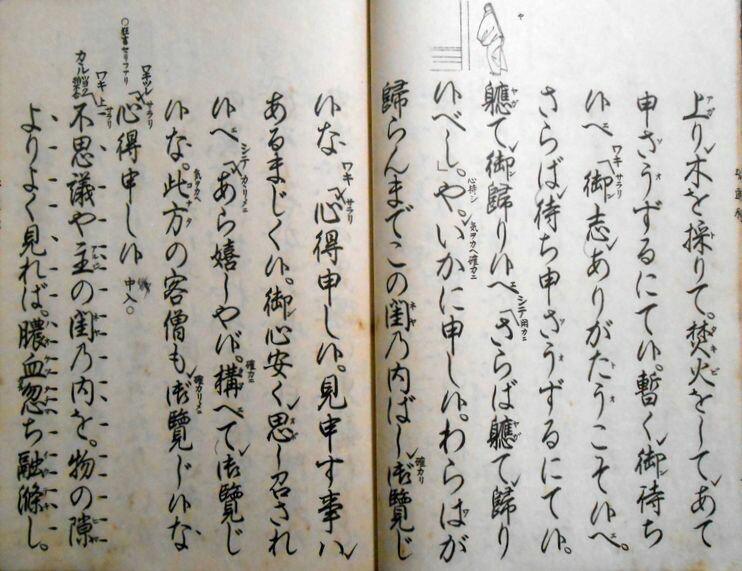 上り木を採りて。焚火をしてあて
申さうずるにて候。暫く御待ち
候へ「御志ありがたうこそ候へ。
ワキ サラリ
さらば待ち申さうずるにて候。
軈て御歸り候へ「さらば軈て歸り
シテ
候べし」や。いかに申し候。わらはが
歸らんまでこの閨乃内ばし御覽じ
確カリ
候な「心得申し候。見申す事ハ
ワキ サラリ
あるまじく候。御心安く思し召され
候へ「あら嬉しや候。構へて御覽じ
シテ
確カニ
候な。此方の客僧も御覽じ候な
氣ヲカヘ
「心得申し候 中入
ワキツレ サラリ
不思議や主の閨乃内を。物の隙
ワキ 上
よりよく見れば。膿血忽ち融滌し。